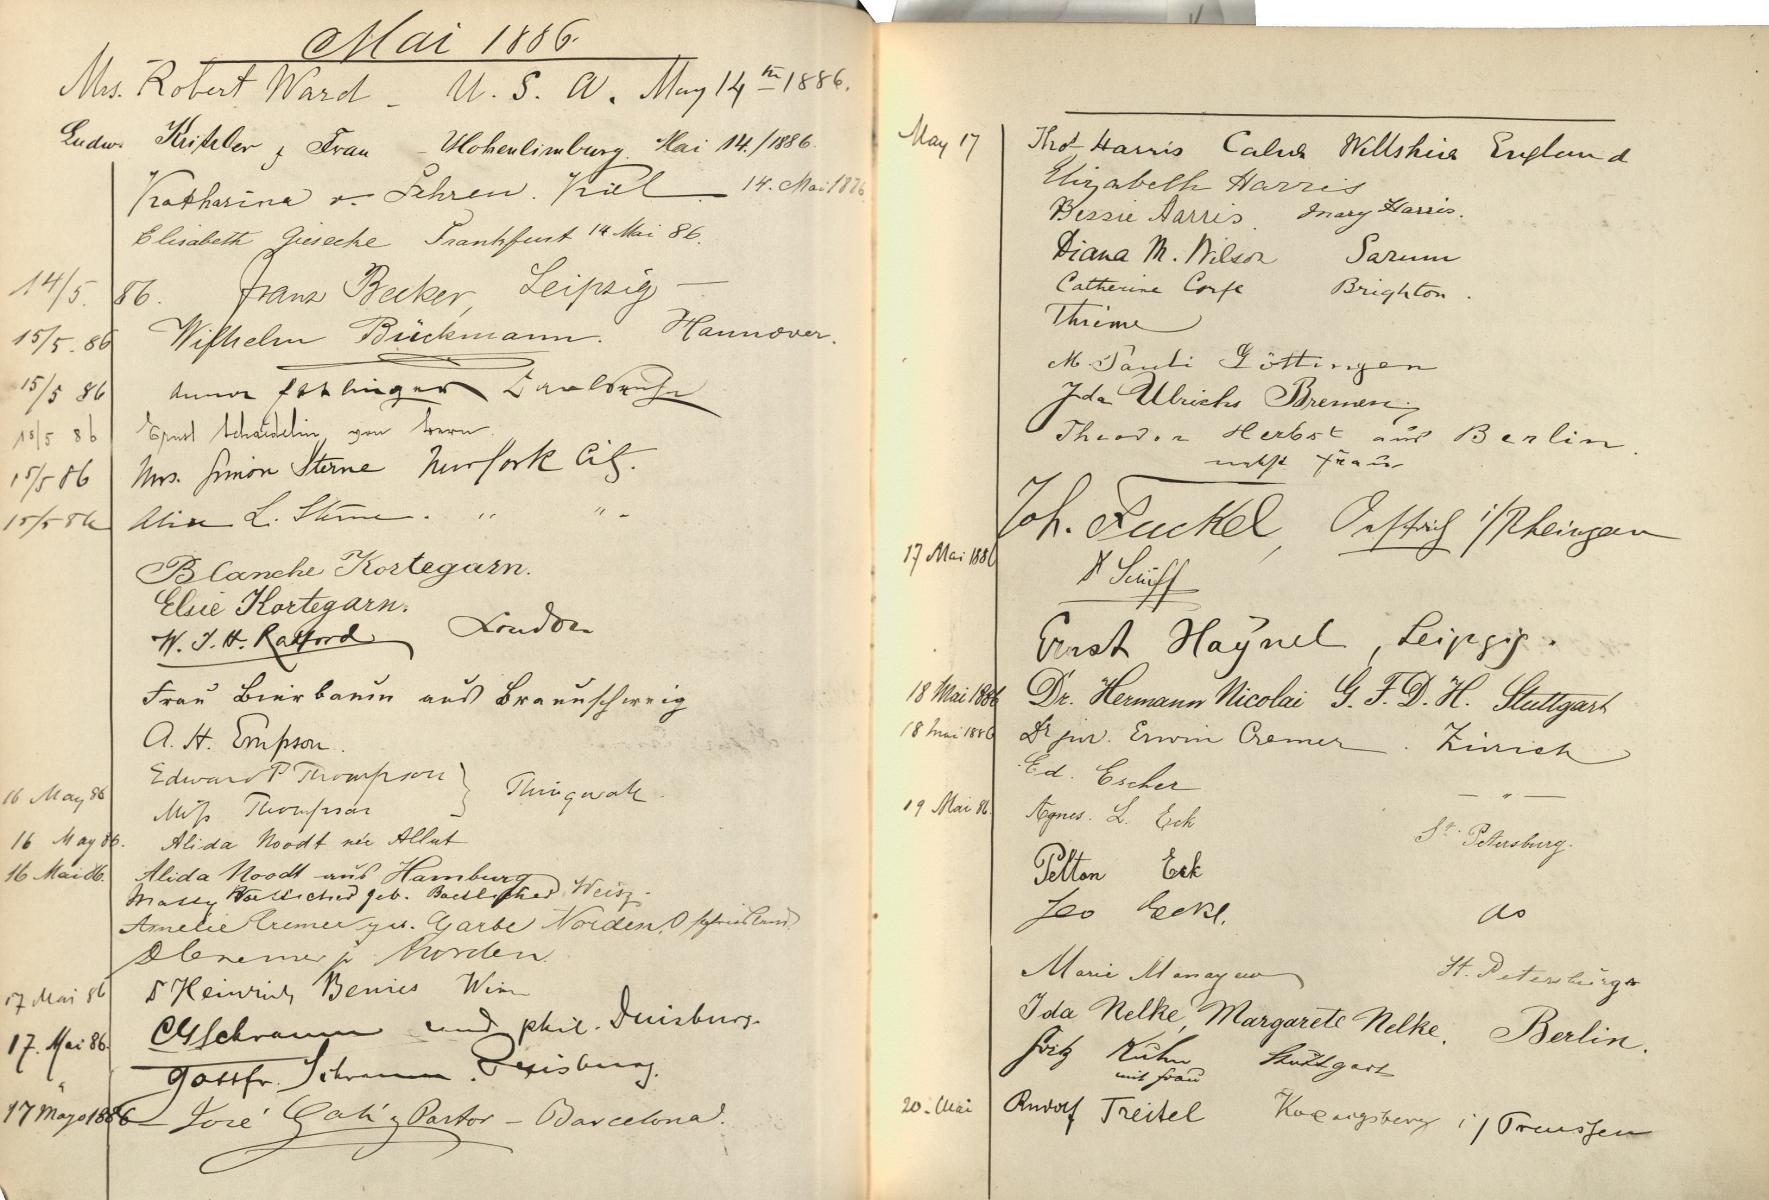 Mai 1886.
Mrs. Robert Ward - U. S. A. May 14th 1886.
Ludw. Kritzler & Frau - Hohenlimburg. Mai 14./1886.
Katharina v. Kiel 14. Mai 1886
Elisabeth Giesecke Frankfurt 14 Mai 86.
14/5. 86. Franz Becker, Leipzig —
15/5. 86 Wilhelm Bückmann. Hannover.
15/5 86 Anna Ettlinger Carlsruhe
15/5 86 Ernst Schaedelin von Bern.
15/5 86 Mrs. Simon Sterne New York City.
15/5 86 Alice L. Sterne. " " -
Blanche Kortegarn.
Elsie Kortegarn.
London
W. J. H. Ratford
Frau Bierbaum aus Braunschweig
A. H. Empson.
Edward P Thompson
16 May 86 Miss Thompson } Thingwall
16 May 86. Alida Noodt née Allut
16 Mai 86. Alida Noodt aus Hamburg
geb.
Amelie Cremer geb. Garbe Norden, Ostfriesland
Norden
17 Mai 86 Dr Heinrich Benies Wien
17. Mai 86. Schramm phil. Duisburg.
" Gottfr. Schramm. Duisburg.
17 Mayo 1886 José Galí y Pastor - Barcelona.
May 17 Thos Harris Calne Wiltshire England
Elizabeth Harris
Bessie Harris Mary Harris.
Diana M. Wilson Sarum
Catherine Corfe Brighton.
Thieme
M. Pauli Göttingen
Ida Ulrichs Bremen.
Theodor Herbst aus Berlin.
nebst Frau
Joh. Fuckel, Oestrich i/Rheingau
17 Mai 1886 Dr Schiff
Ernst Haÿnel, Leipzig.
18 Mai 1886 Dr. Hermann Nicolai G. F. D. H. Stuttgart
18 Mai 1886 Dr jur. Erwin Cremer. Zürich
Ed. Escher — " —
19 Mai 86. Agnes. L. Eck St. Petersburg.
Pelton Eck
Leo Eckl. do
Marie St. Petersburg
Ida Nelke, Margarete Nelke. Berlin.
Fritz Kuhn Stuttgart
mit Frau
20. Mai Rudolf Treitel Koenigsberg i/Preussen